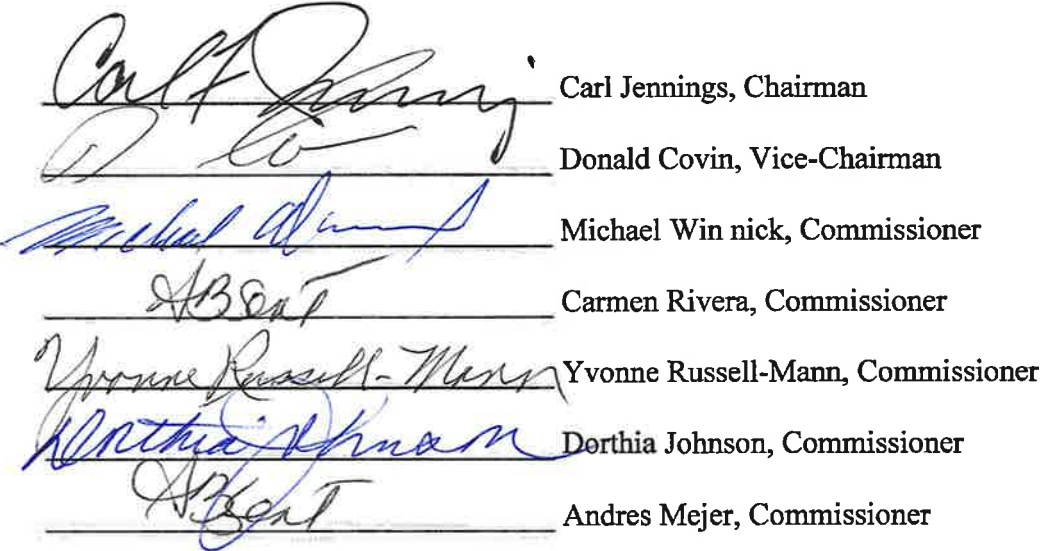 Carl F Jennings Carl Jennings, Chairman
D Co Donald Covin, Vice-Chairman
Michael Winnick Michael Win nick, Commissioner
ABsent Carmen Rivera, Commissioner
Yvonne Russell-Mann Yvonne Russell-Mann, Commissioner
Dorthia Johnson Dorthia Johnson, Commissioner
ABsent Andres Mejer, Commissioner